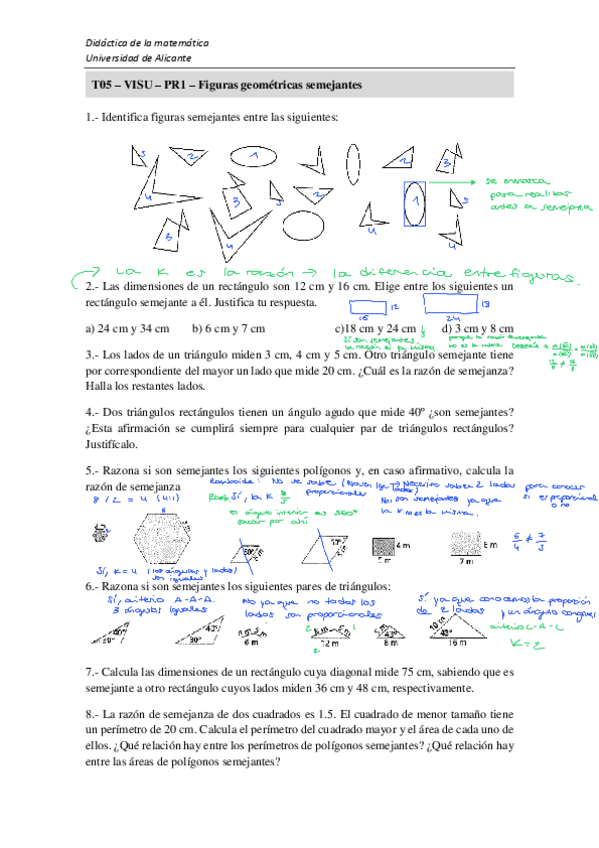 Didáctica de la matemática
Universidad de Alicante
T05 – VISU – PR1 – Figuras geométricas semejantes
1.- Identifica figuras semejantes entre las siguientes:
5 2 1 2 3
se enmarca
para realizar
antes a semejanza
3 5 2 1 5
4 3 4 4 4
La K es la razón → la diferencia entre figuras.
2.- Las dimensiones de un rectángulo son 12 cm y 16 cm. Elige entre los siguientes un
rectángulo semejante a él. Justifica tu respuesta.
12 16 18 24
a) 24 cm y 34 cm b) 6 cm y 7 cm c)18 cm y 24 cm d) 3 cm y 8 cm
Sí son semejantes,
la razón es la misma.
no es la misma
3.- Los lados de un triángulo miden 3 cm, 4 cm y 5 cm. Otro triángulo semejante tiene
por correspondiente del mayor un lado que mide 20 cm. ¿Cuál es la razón de semejanza?
Halla los restantes lados.
4.- Dos triángulos rectángulos tienen un ángulo agudo que mide 40º ¿son semejantes?
¿Esta afirmación se cumplirá siempre para cualquier par de triángulos rectángulos?
Justifícalo.
5.- Razona si son semejantes los siguientes polígonos y, en caso afirmativo, calcula la
razón de semejanza
Romboide: No se sabe → Necesito saber 2 lados para conocer
si es proporcional
o no
8/2 = 4 (4:1)
Romb. Sí, la K
proporcionales
No son semejantes ya que
la K no es la misma.
el ángulo interior es 360º
sacar por ahí
8
50º 70º 4 m 5 m 7 m
6/4 ≠ 7/5
Sí, K = 4 (los ángulos y lados)
son iguales
6.- Razona si son semejantes los siguientes pares de triángulos:
Sí, criterio A-A-A.
3 ángulos iguales
No ya que no todos los
lados son proporcionales
Sí ya que conocemos la proporción
de 2 lados y un ángulo congruente
criterio L-A-L
K=2
30º 6 m 12 m 8 m 16 m
7.- Calcula las dimensiones de un rectángulo cuya diagonal mide 75 cm, sabiendo que es
semejante a otro rectángulo cuyos lados miden 36 cm y 48 cm, respectivamente.
8.- La razón de semejanza de dos cuadrados es 1.5. El cuadrado de menor tamaño tiene
un perímetro de 20 cm. Calcula el perímetro del cuadrado mayor y el área de cada uno de
ellos. ¿Qué relación hay entre los perímetros de polígonos semejantes? ¿Qué relación hay
entre las áreas de polígonos semejantes?